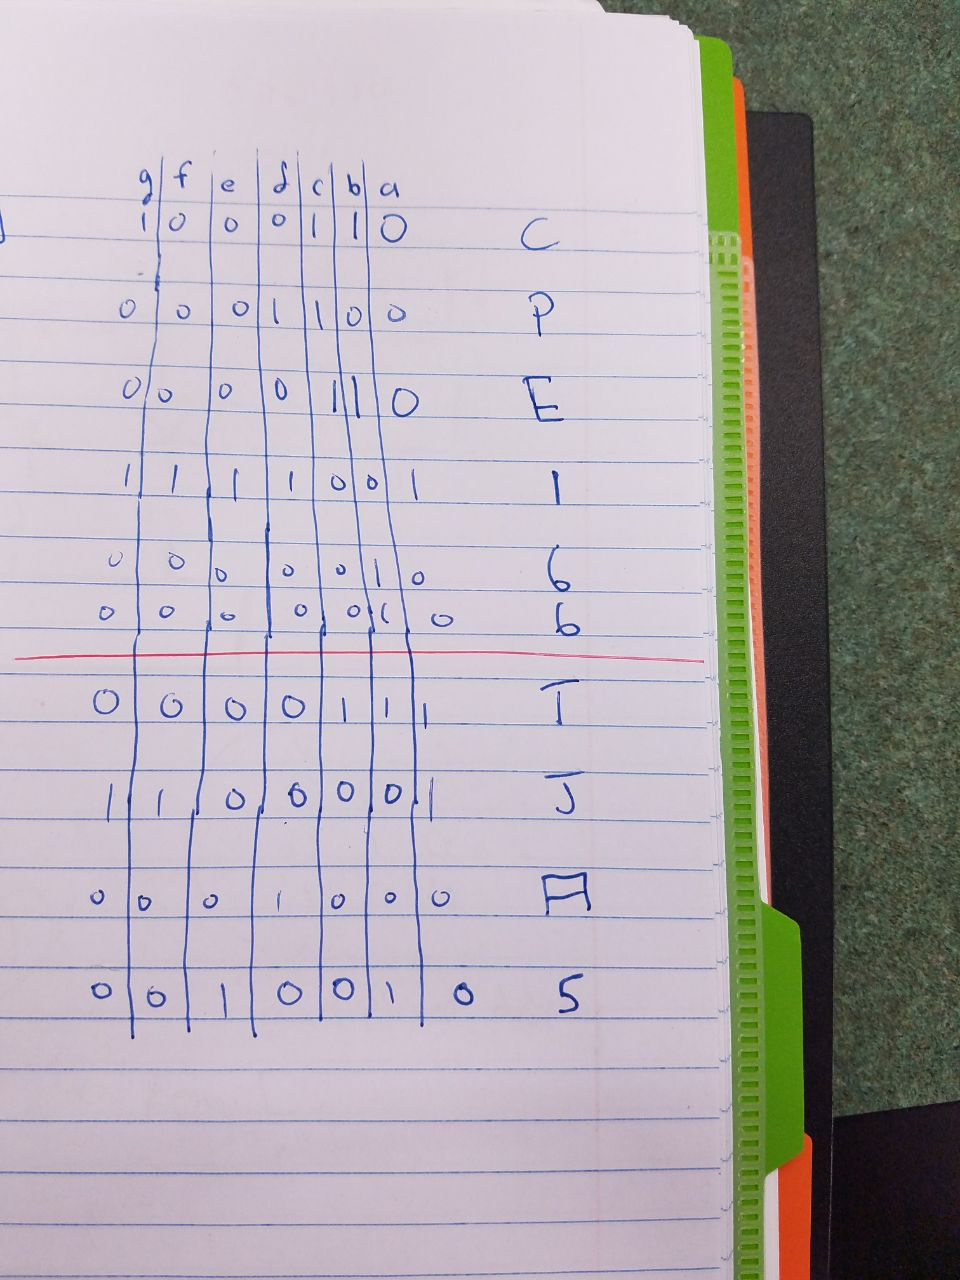 g f e d c b a
1 0 0 0 1 1 0 C
0 0 0 1 1 0 0 P
0 0 0 0 1 1 0 E
1 1 1 1 0 0 1 1
0 0 0 0 0 1 0 6
0 0 0 0 0 1 0 6
0 0 0 0 1 1 1 T
1 1 0 0 0 0 1 J
0 0 0 1 0 0 0 A
0 0 1 0 0 1 0 5